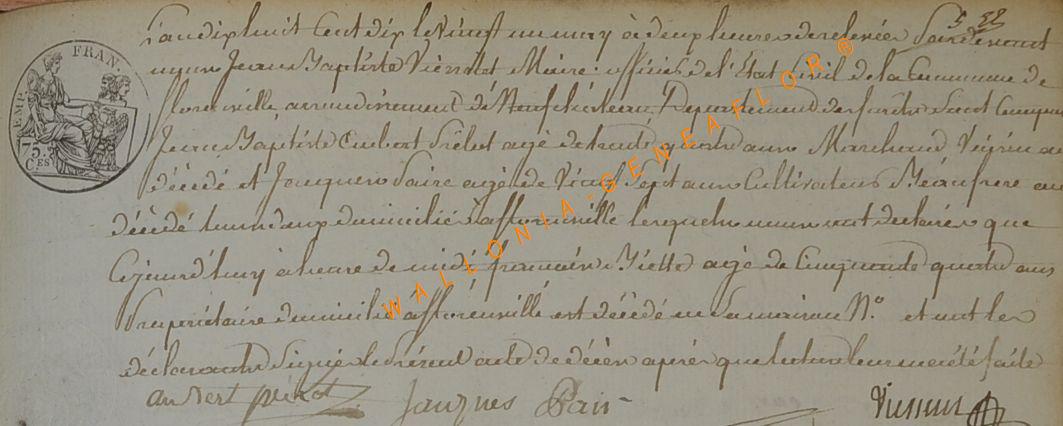 5 52
L'an dix huit Cent dix le Vingt un may à deux heures de relevée Pardevant
nous Jean Baptiste Maire officier de l'Etat Civil de la Commune de
florenville arrondissement de Neufchâteau Département des forêts Sont Comparu
Jean Baptiste Cuubert agé de trente quatre ans Marchand Voisin au
décédé et Jacques agé de Vingt Sept ans Cultivateur Beaufrere au
décédé tous deux domicilié à florenville lesquels nous ont declarér que
Cejourd'huy à heure de midi françois agé de Cinquante quatre ans
Propriétaire domicilié à florenville est décédé en Sa maison N.o et ont les
déclarants Signé le Présent acte de décès après que lecture leur en a été faite
Jacques
FRAN.
EMP.
75.
C.ES
WALLONIA-GENEAFLOR®